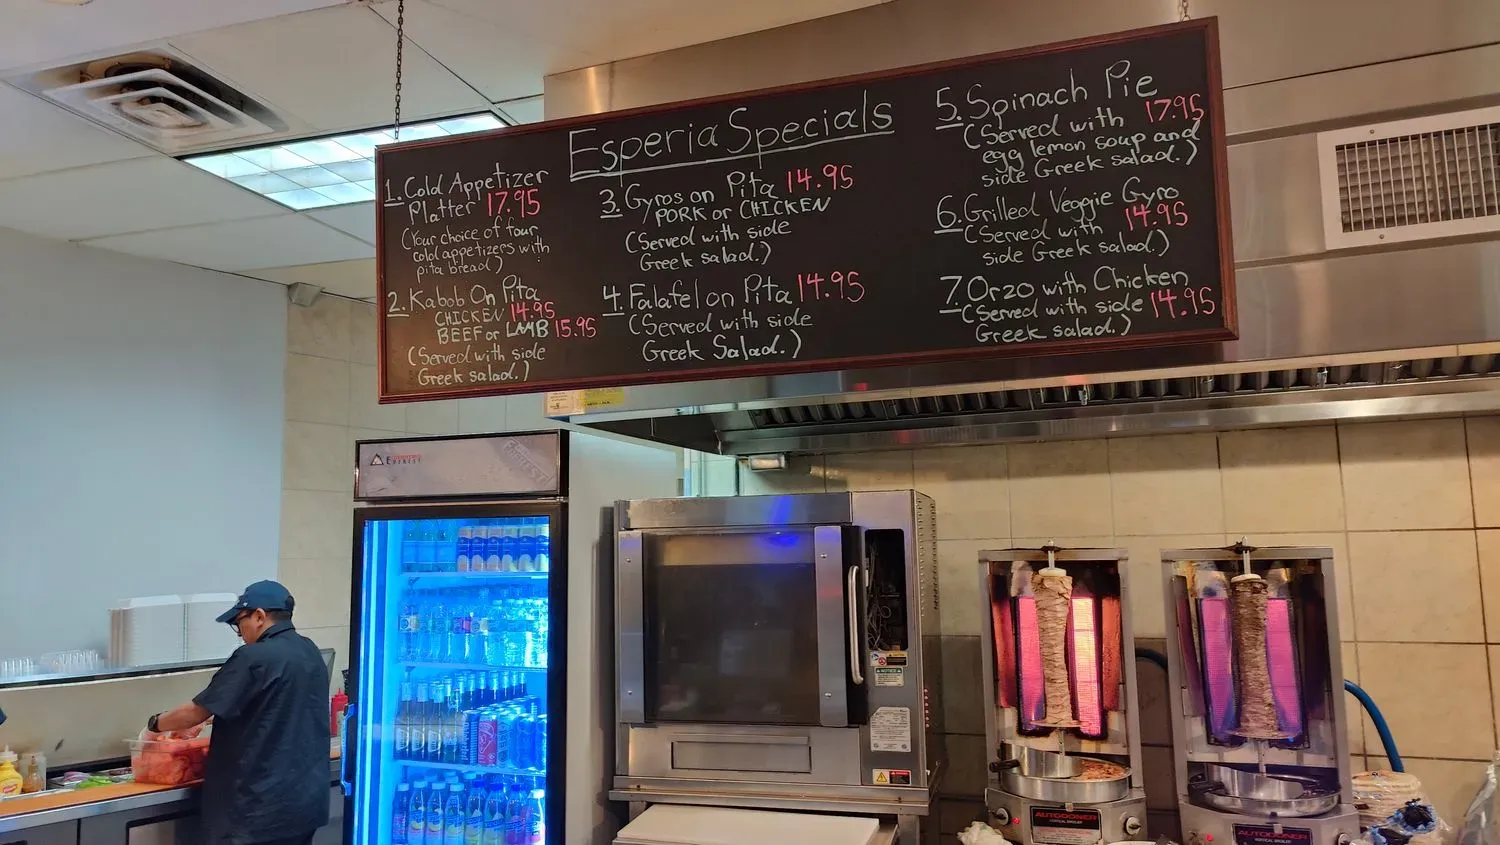 Esperia Specials
1. Cold Appetizer
Platter 17.95
(Your choice of four
cold appetizers with
pita bread)
2. Kabob On Pita
CHICKEN 14.95
BEEF or LAMB 15.95
(Served with side
Greek salad.)
3. Gyros on Pita 14.95
PORK or CHICKEN
(Served with side
Greek salad.)
4. Falafel on Pita 14.95
(Served with side
Greek Salad.)
5. Spinach Pie
17.95
(Served with
egg lemon soup and
side Greek salad.)
6. Grilled Veggie Gyro
(Served with 14.95
side Greek salad.)
7. Orzo with Chicken
(Served with side 14.95
Greek salad.)
EVEREST
NOTICE
AUTODONER
VERTICAL BROILER
AUTODONER
VERTICAL BROILER